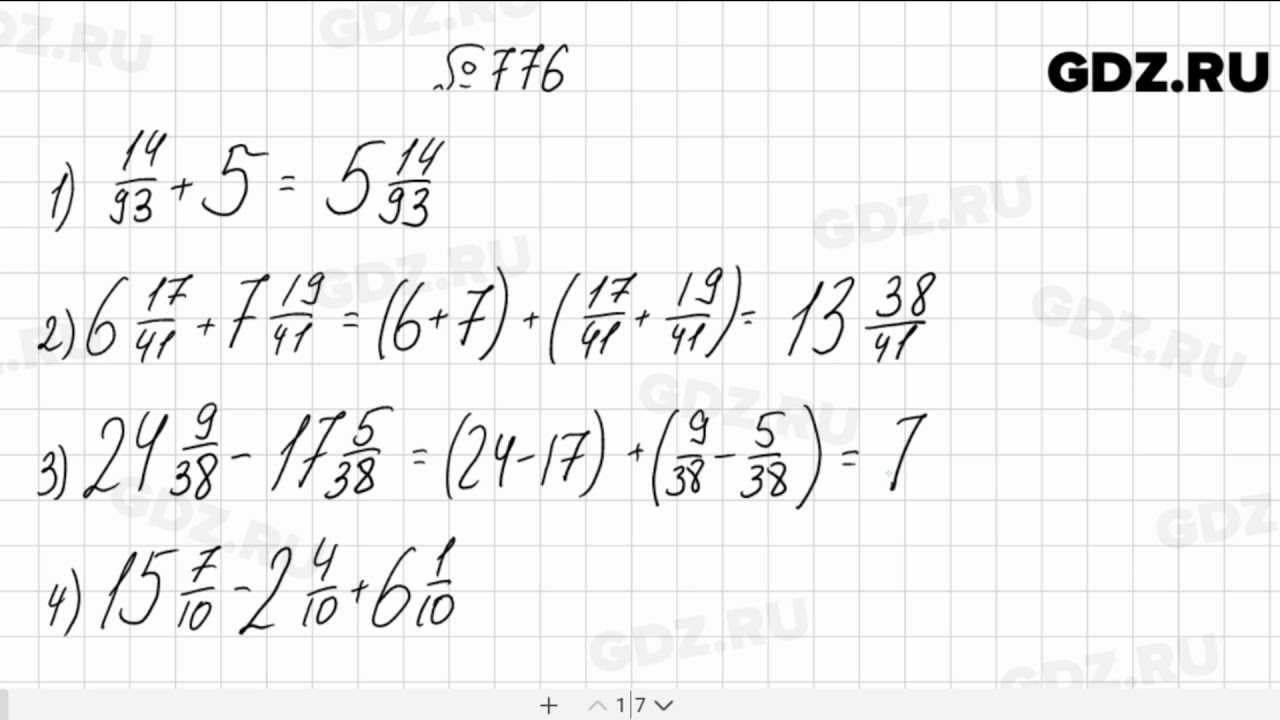 № 776
GDZ.RU
1) 14/93 + 5 = 5 14/93
2) 6 17/41 + 7 19/41 = (6+7) + (17/41 + 19/41) = 13 38/41
3) 24 9/38 - 17 5/38 = (24-17) + (9/38 - 5/38) = 7
4) 15 7/10 - 2 4/10 + 6 1/10
+ 1|7